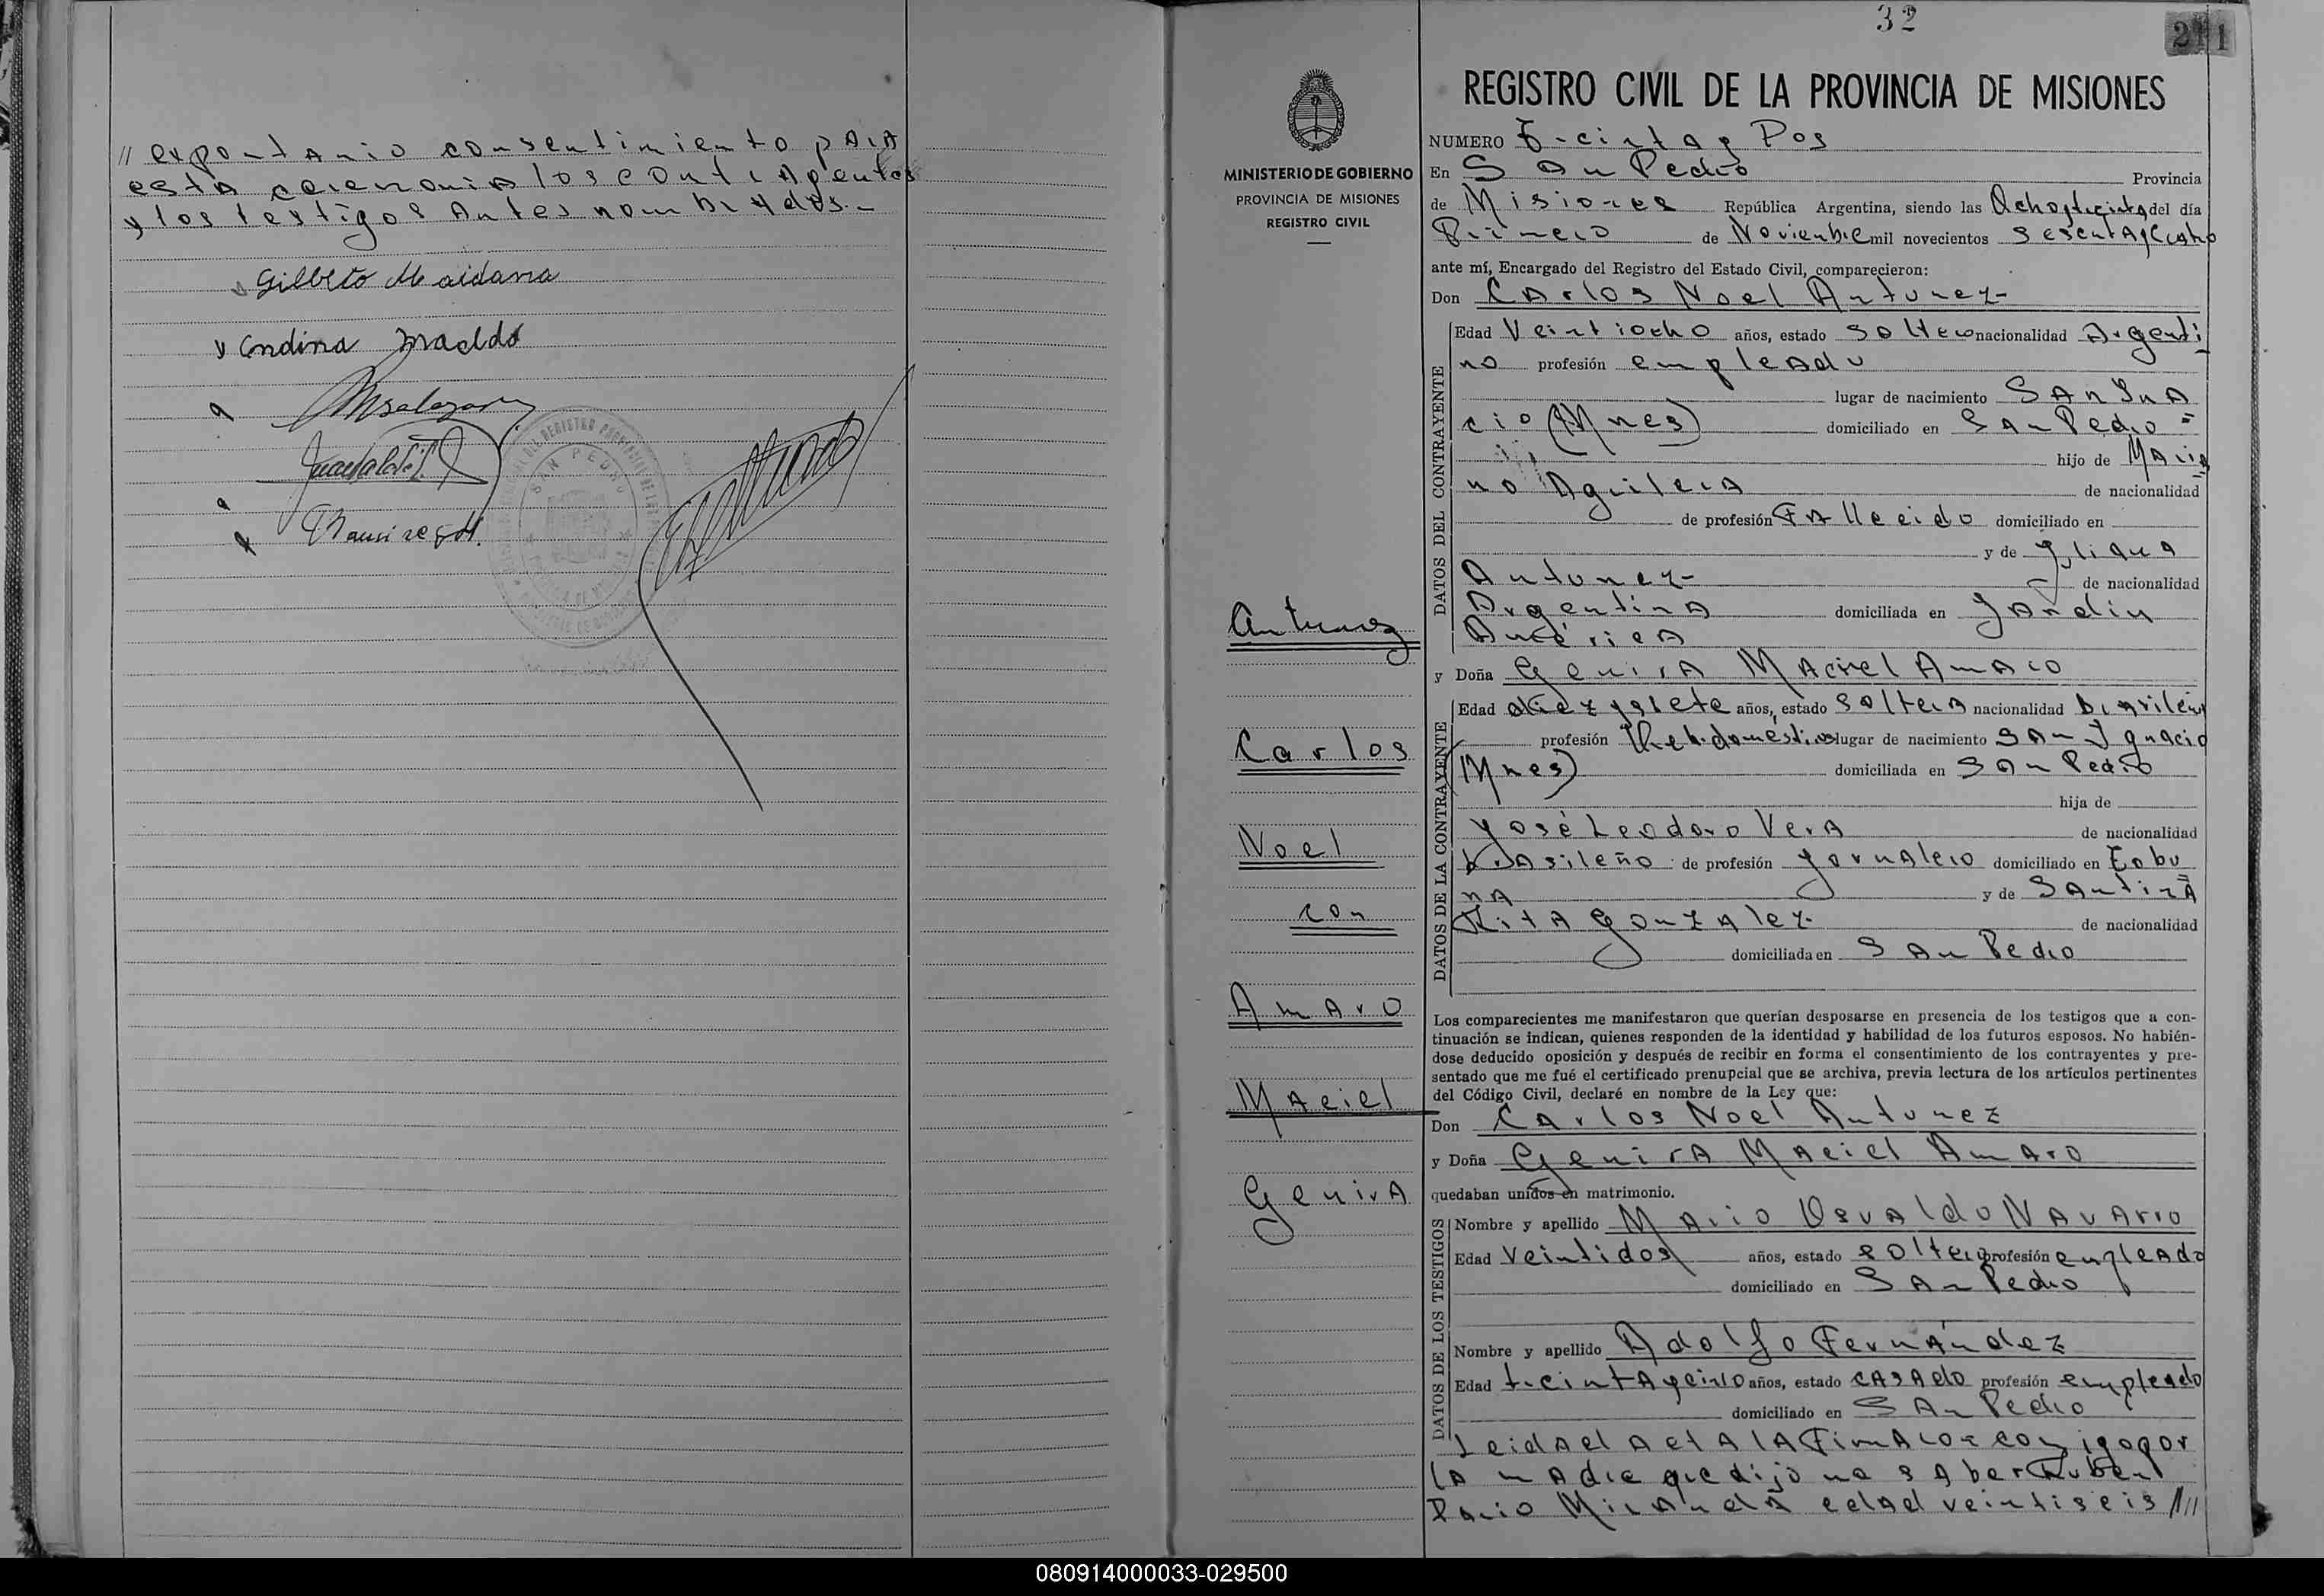 // expontanio consentimiento para
esta ceremonia los contrayentes
y los testigos antes nombrados.-
Gilberto Maidana
SAN PEDRO
32
211
REGISTRO CIVIL DE LA PROVINCIA DE MISIONES
MINISTERIO DE GOBIERNO
PROVINCIA DE MISIONES
REGISTRO CIVIL
NUMERO Treinta y Dos
En San Pedro Provincia
de Misiones República Argentina, siendo las Ocho y treinta del día
Primero de Novienbre mil novecientos sesenta y cuatro
ante mí, Encargado del Registro del Estado Civil, comparecieron:
Don Carlos Noel Antunez-
DATOS DEL CONTRAYENTE
Edad Veintiocho años, estado soltero nacionalidad Argenti
no profesión empleado
lugar de nacimiento San Igna
cio (Mnes) domiciliado en San Pedro =
hijo de Maria
no Aguilera de nacionalidad
de profesión Fallecido domiciliado en
y de
Antunez- de nacionalidad
Argentina domiciliada en Jardin
América
y Doña Genira Maciel Amaro
DATOS DE LA CONTRAYENTE
Edad diez y siete años, estado soltera nacionalidad brasileña
profesión domésticos lugar de nacimiento San Ignacio
(Mnes) domiciliada en San Pedro
hija de
José Leodoro Vera de nacionalidad
brasileño de profesión Jornalero domiciliado en Tobu
na y de Santina
Rita Gonzalez- de nacionalidad
domiciliada en San Pedro
Antunez
Carlos
Noel
con
Amaro
Maciel
Genira
Los comparecientes me manifestaron que querían desposarse en presencia de los testigos que a con-
tinuación se indican, quienes responden de la identidad y habilidad de los futuros esposos. No habién-
dose deducido oposición y después de recibir en forma el consentimiento de los contrayentes y pre-
sentado que me fué el certificado prenupcial que se archiva, previa lectura de los artículos pertinentes
del Código Civil, declaré en nombre de la Ley que:
Don Carlos Noel Antunez
y Doña Genira Maciel Amaro
quedaban unidos en matrimonio.
DATOS DE LOS TESTIGOS
Nombre y apellido Mario Osvaldo Navarro
Edad veintidos años, estado soltero profesión empleado
domiciliado en San Pedro
Nombre y apellido Adolfo Fernández
Edad treinta y cinco años, estado casado profesión empleado
domiciliado en San Pedro
Leida el acta la firmaron conmigo por
la madre que dijo no saber Ruben
Dario Miranda edad veintiseis ///
080914000033-029500